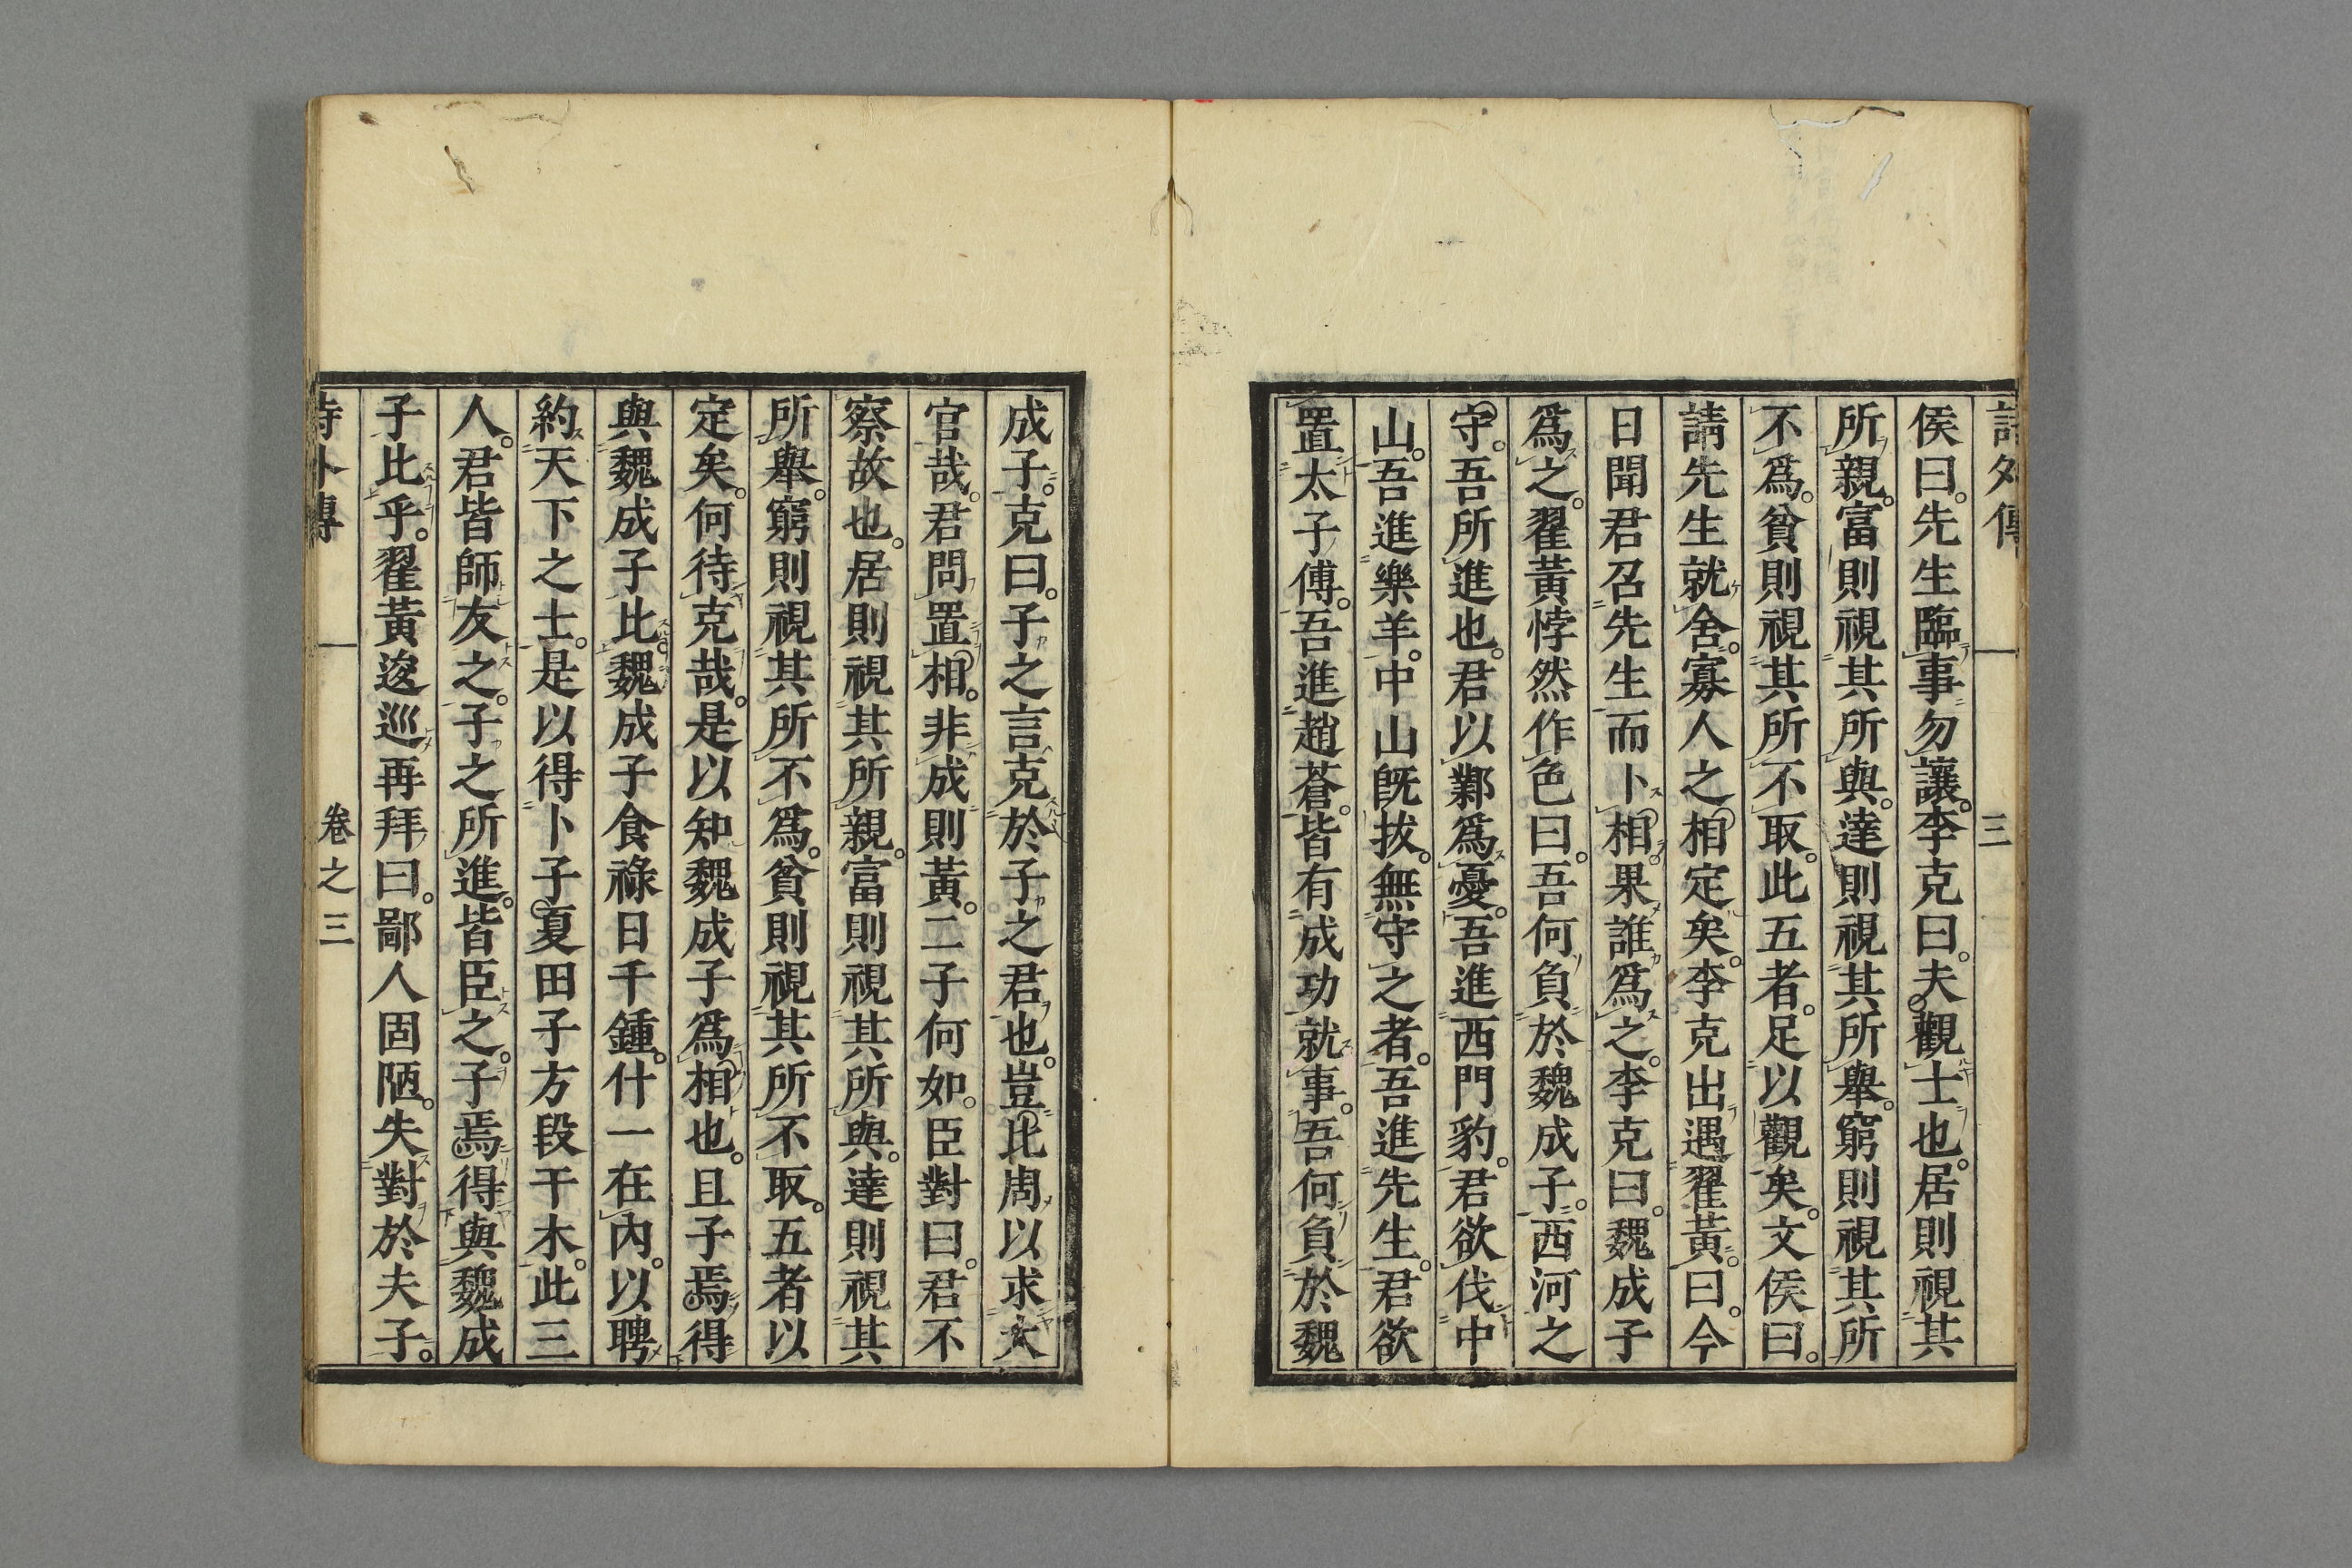 詩外傳 三
侯曰。先生臨事勿讓。李克曰。夫觀士也。居則視其
所親。富則視其所與。達則視其所舉。窮則視其所
不爲。貧則視其所不取。此五者。足以觀矣。文侯曰。
請先生就舍。寡人之相定矣。李克出遇翟黃。曰。今
日聞君召先生而卜相。果誰爲之。李克曰。魏成子
爲之。翟黃悖然作色曰。吾何負於魏成子。西河之
守。吾所進也。君以鄴爲憂。吾進西門豹。君欲伐中
山。吾進樂羊。中山既拔。無守之者。吾進先生。君欲
置太子傅。吾進趙蒼。皆有成功就事。吾何負於魏
成子。克曰。子之言克於子之君也。豈比周以求大
官哉。君問置相。非成則黃。二子何如。臣對曰。君不
察故也。居則視其所親。富則視其所與。達則視其
所舉。窮則視其所不爲。貧則視其所不取。五者以
定矣。何待克哉。是以知魏成子爲相也。且子焉得
與魏成子比。魏成子食祿日千鍾。什一在內。以聘
約天下之士。是以得卜子夏田子方段干木。此三
人。君皆師友之。子之所進。皆臣之。子焉得與魏成
子比乎。翟黃逡巡再拜曰。鄙人固陋。失對於夫子。
詩外傳 卷之三